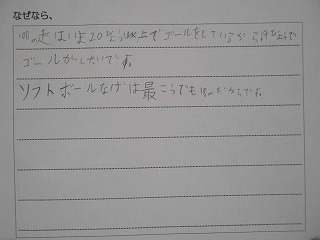 なぜなら、
走はいま20びょう以上でゴールをしているから
ゴールがしたいです。
ソフトボールなげは最こうでも だからです。